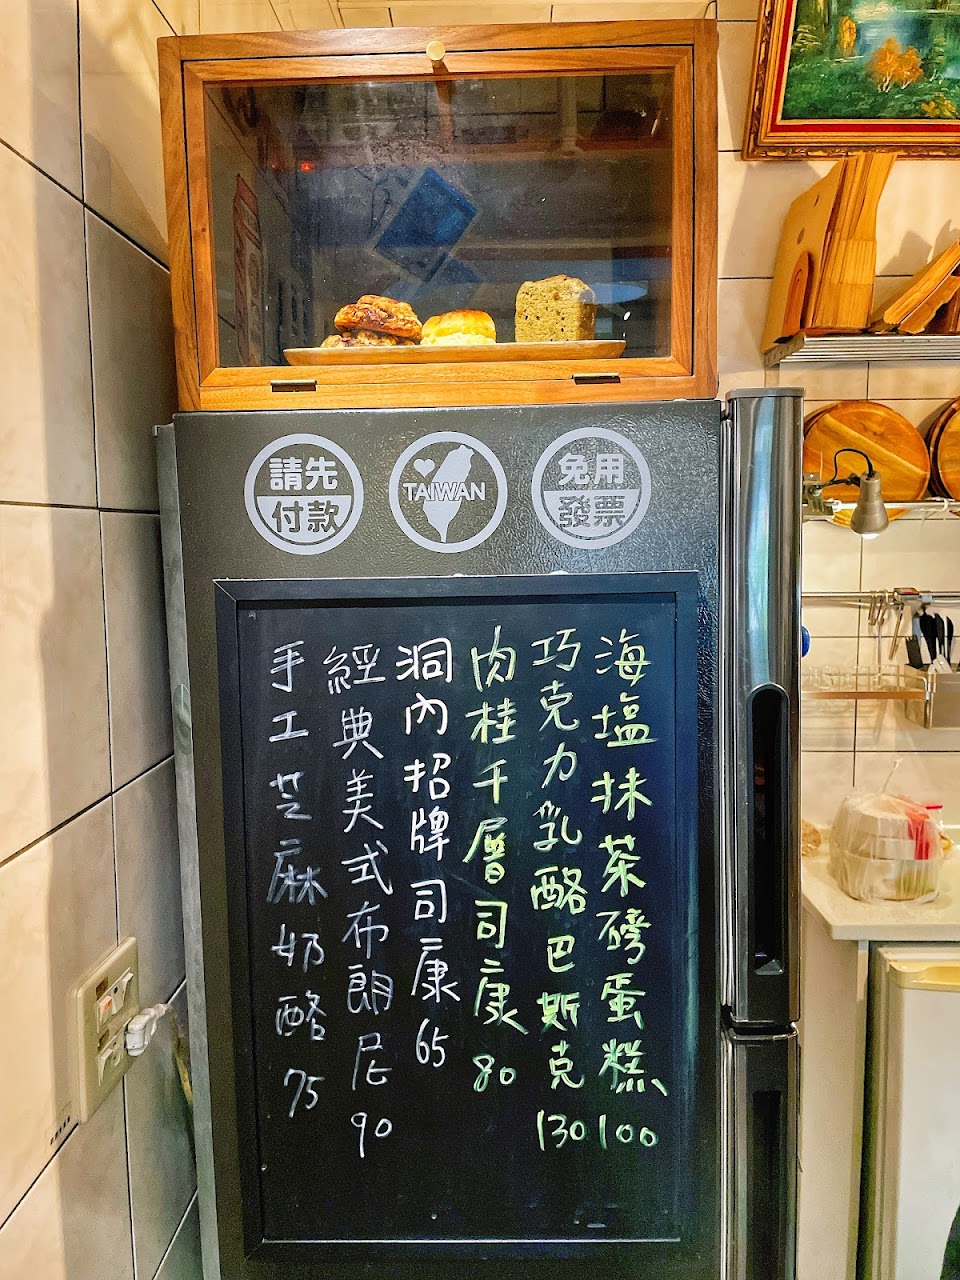 請先
付款
TAIWAN
免用
發票
海塩抹茶磅蛋糕 100
巧克力乳酪巴斯克 130
肉桂千層司康 80
洞內招牌司康 65
經典美式布朗尼 90
手工芝麻奶酪 75